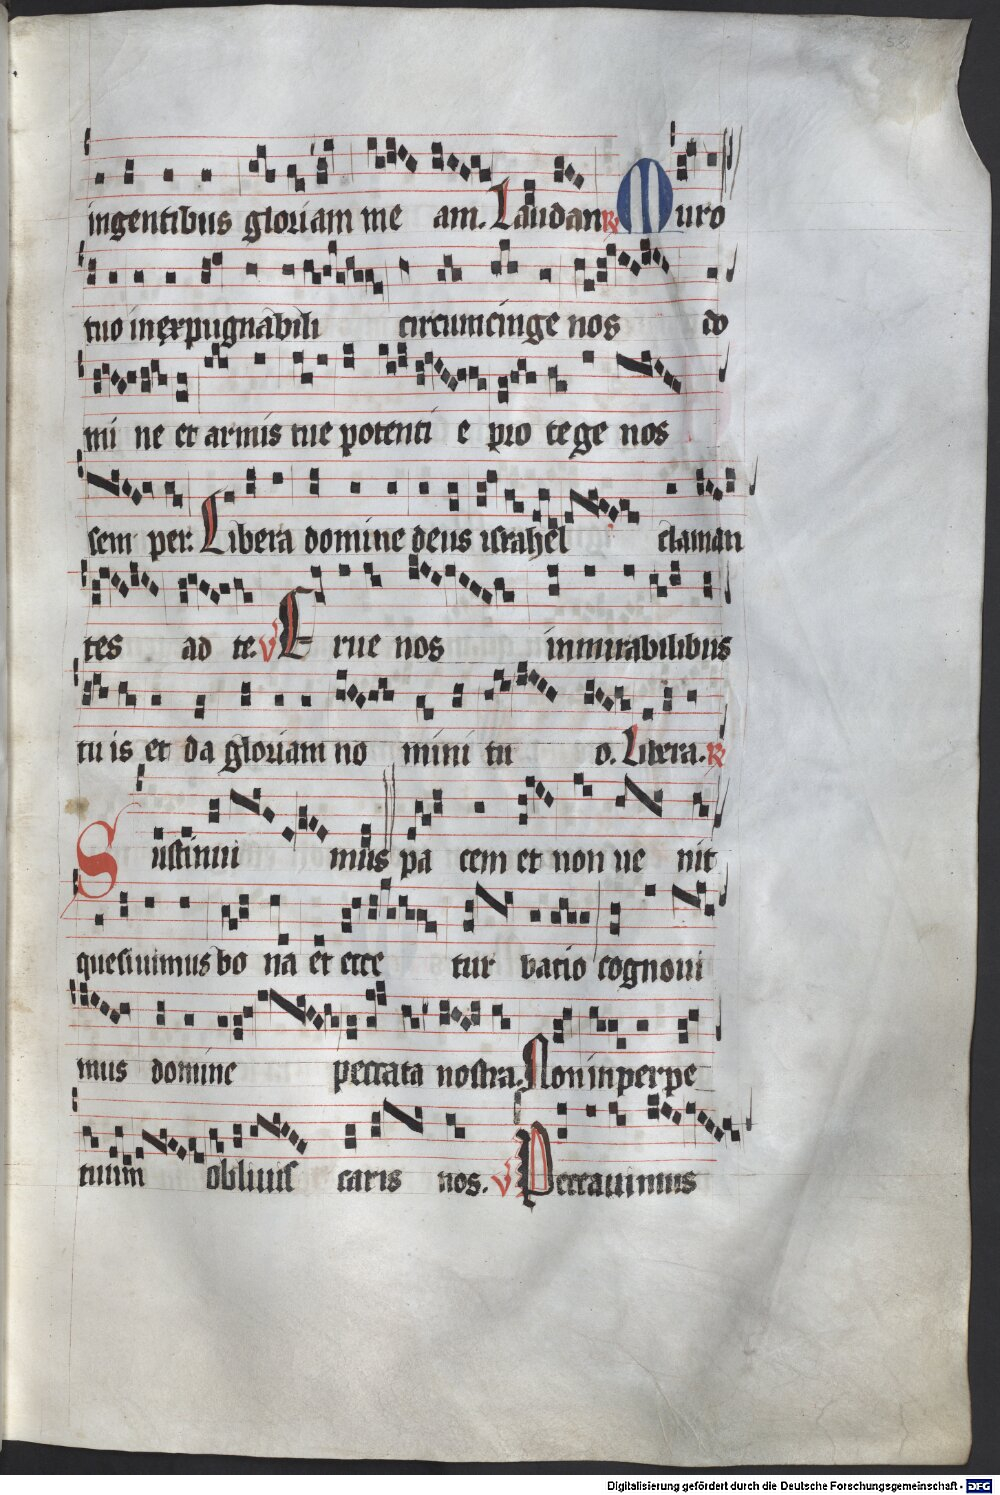 ingentibus gloriam me am. Laudan ℟ Muro
tuo inexpugnabili circumcinge nos do
mi ne et armis tue potenti e pro te ge nos
sem per. Libera domine deus israhel claman
tes ad te. V Erue nos in mirabilibus
tu is et da gloriam no mini tu o. Libera. ℟
Sustinui mus pa cem et non ue nit
quesiuimus bo na et ecce tur batio cognoui
mus domine peccata nostra. Non in perpe
tuum obliuis caris nos. V Peccauimus
Digitalisierung gefördert durch die Deutsche Forschungsgemeinschaft - DFG